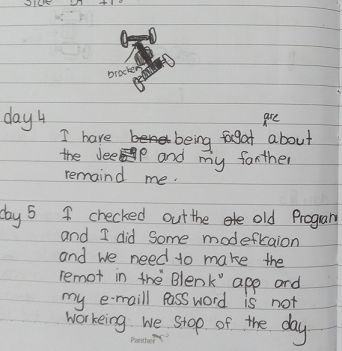 side of it.
brocken
day 4
are
I have being fogat about
the Jeep and my farther
remaind me.
day 5 I checked out the old Program
and I did some modefkaion
and we need to make the
remot in the "Blenk" app and
my e-maill Password is not
workeing we stop of the day.
Panther